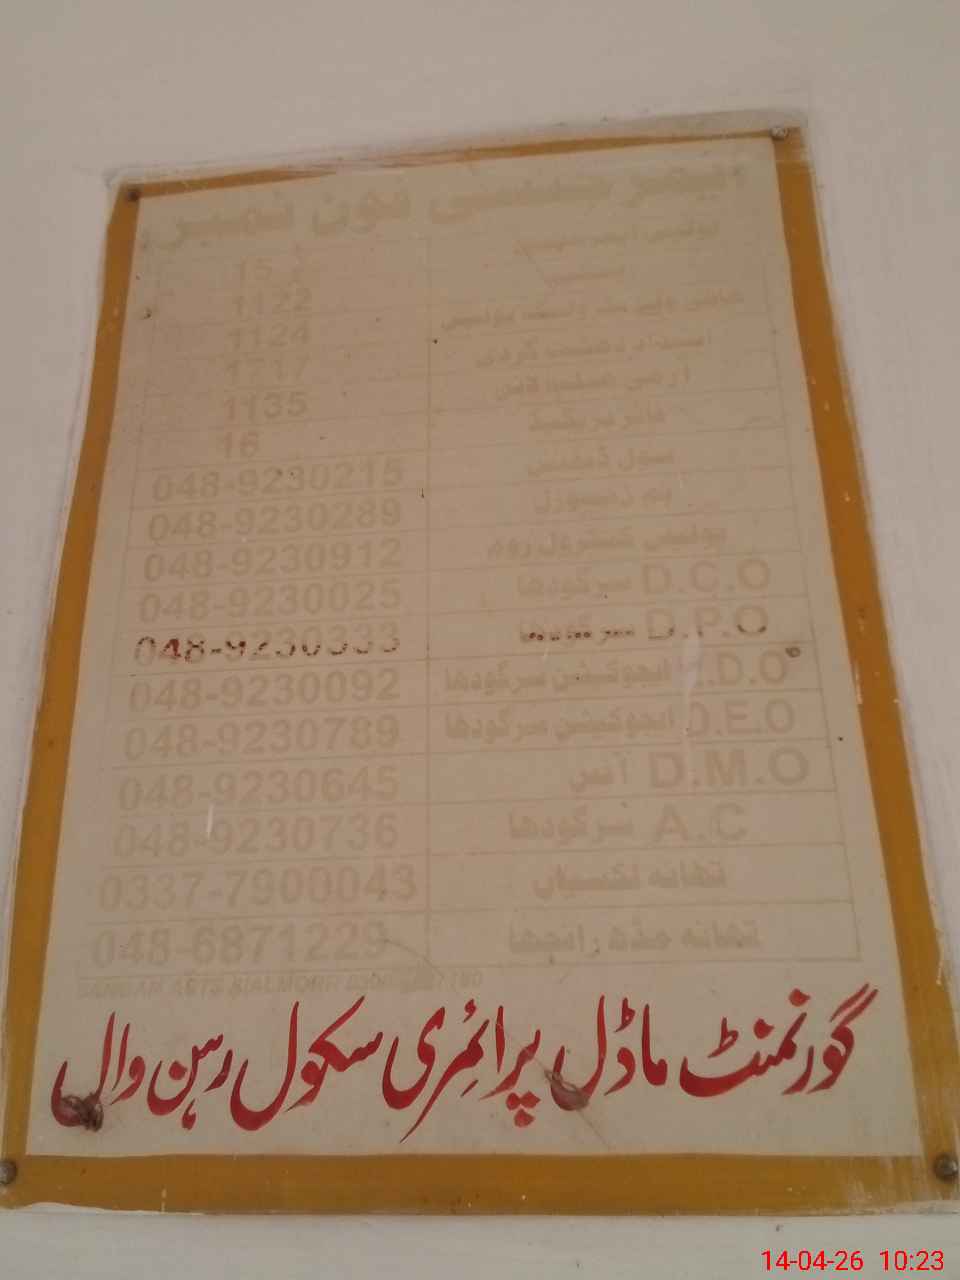 ایمرجنسی فون نمبر
15
1122
1124
1717
انسداد دہشت گردی
1135
16
فائر بریگیڈ
سول ڈیفنس 048-9230215
بم ڈسپوزل 048-9230289
پولیس کنٹرول روم 048-9230912
D.C.O سرگودھا 048-9230025
D.P.O سرگودھا 048-9230333
.D.O ایجوکیشن سرگودھا 048-9230092
D.E.O ایجوکیشن سرگودھا 048-9230789
D.M.O آفس 048-9230645
A.C سرگودھا 048-9230736
تھانہ لکسیاں 0337-7900043
تھانہ مڈھ رانجھا 048-6871229
SANGAM ARTS KIALMORR
گورنمنٹ ماڈل پرائمری سکول رہن وال
14-04-26 10:23